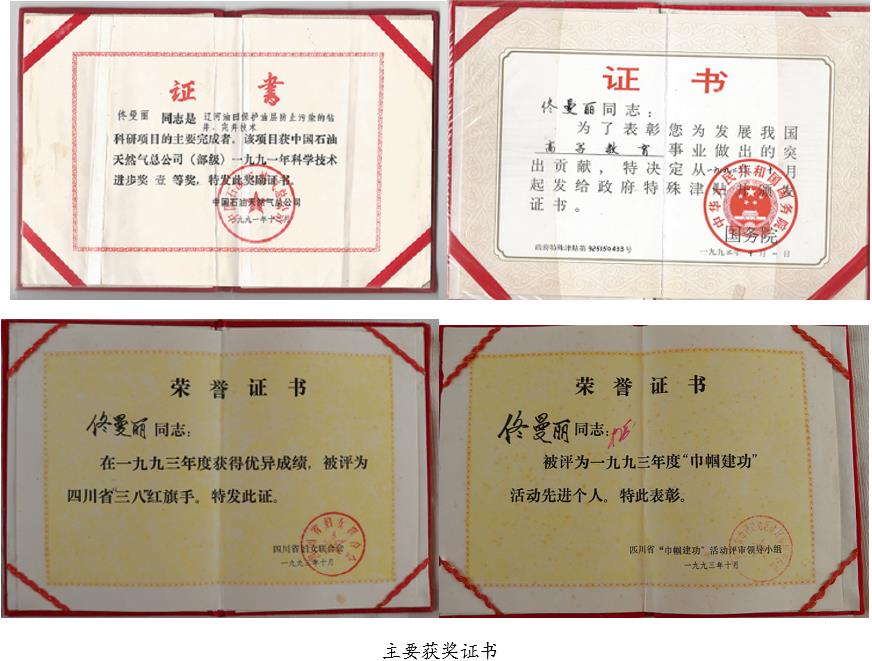 证 书
佟曼丽 同志是 辽河油田保护油层防止污染的钻
井、完井技术
科研项目的主要完成者。该项目获中国石油
天然气总公司（部级）一九九一年科学技术
进步奖 壹 等奖，特发此奖励证书。
中国石油天然气总公司
一九九一年十 月
证 书
佟曼丽同志：
为了表彰您为发展我国
高等教育 事业做出的突
出贡献，特决定从一九九 年 月
起发给政府特殊津贴并颁发
证书。
国务院
政府特殊津贴第 925150433 号
中华人民共和国国务院
荣 誉 证 书
佟曼丽 同志：
在一九九三年度获得优异成绩，被评为
四川省“三八”红旗手。特发此证。
四川省妇女联合会
一九九三年十月
荣 誉 证 书
佟曼丽 同志：
被评为一九九三年度“巾帼建功”
活动先进个人。特此表彰。
四川省“巾帼建功”活动评审领导小组
一九九三年十月
主要获奖证书